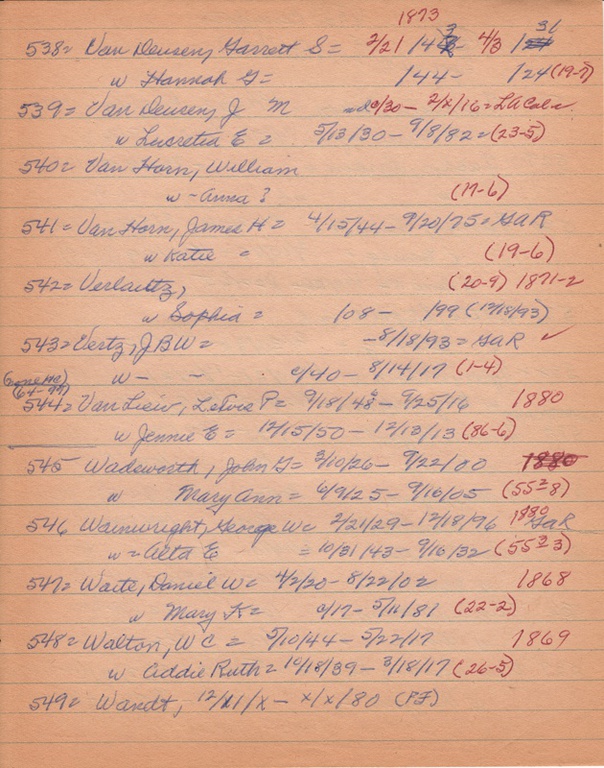 1873
538= Van Deusen, Garrett S= 2/21/43 - 4/3/31
w Hannah G= /44- /24 (19-7)
539= Van Deusen, J M c/30 - 2/x/16=
w Lucretia E = 5/13/30 - 9/8/82= (23-5)
540= Van Horn, William
w - Anna? (17-6)
541= Van Horn, James H= 4/15/44 - 9/20/75= GAR
w Katie = (19-6)
542= (20-9) 1871-2
w Sophia = /08 - /99 (12/18/93)
543= Vertz, J B W= -8/18/93= GAR ✓
w - - c/40 - 8/14/17 (1-4)
(64-77)
544= Van Liew, P= 9/18/48 - 9/25/16 1880
w Jennie E= 12/15/50 - 12/13/13 (86-6)
545 Wadsworth, John G= 3/10/26 - 9/22/00 1880
w Mary Ann = 6/9/25 - 9/16/05 (55 2 8)
546 Wainwright, George W= 2/21/29 - 12/18/96 1880 GAR
w = Alta E = 10/31/43 - 9/16/32 (55 2 3)
547= Waite, Daniel W= 4/2/20 - 8/22/02 1868
w Mary K= c/17 - 5/11/81 (22-2)
548= Walton, W C = 5/10/44 - 5/22/17 1869
w Addie Ruth= 10/18/39 - 3/18/17 (26-5)
549= Wandt, 12/x1/x - x/x/80 (PF)